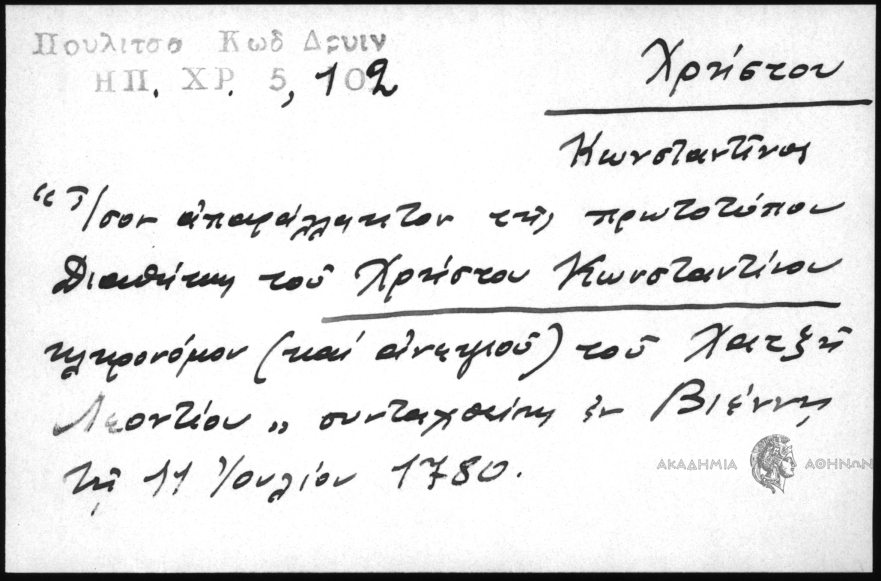 Πουλιτσα Κωδ Δρυιν
ΗΠ. ΧΡ. 5, 102
Χρήστου
Κωνσταντίνος
“Ἴσον ἀπαράλλακτον τῆς πρωτοτύπου
Διαθήκης τοῦ Χρήστου Κωνσταντίνου
κληρονόμου (καί ἀνεψιοῦ) τοῦ Χατζῆ
Λεοντίου „ συνταχθείσης ἐν Βιέννῃ
τῇ 11 Ἰουλίου 1780.
ΑΚΑΔΗΜΙΑ ΑΘΗΝΩΝ